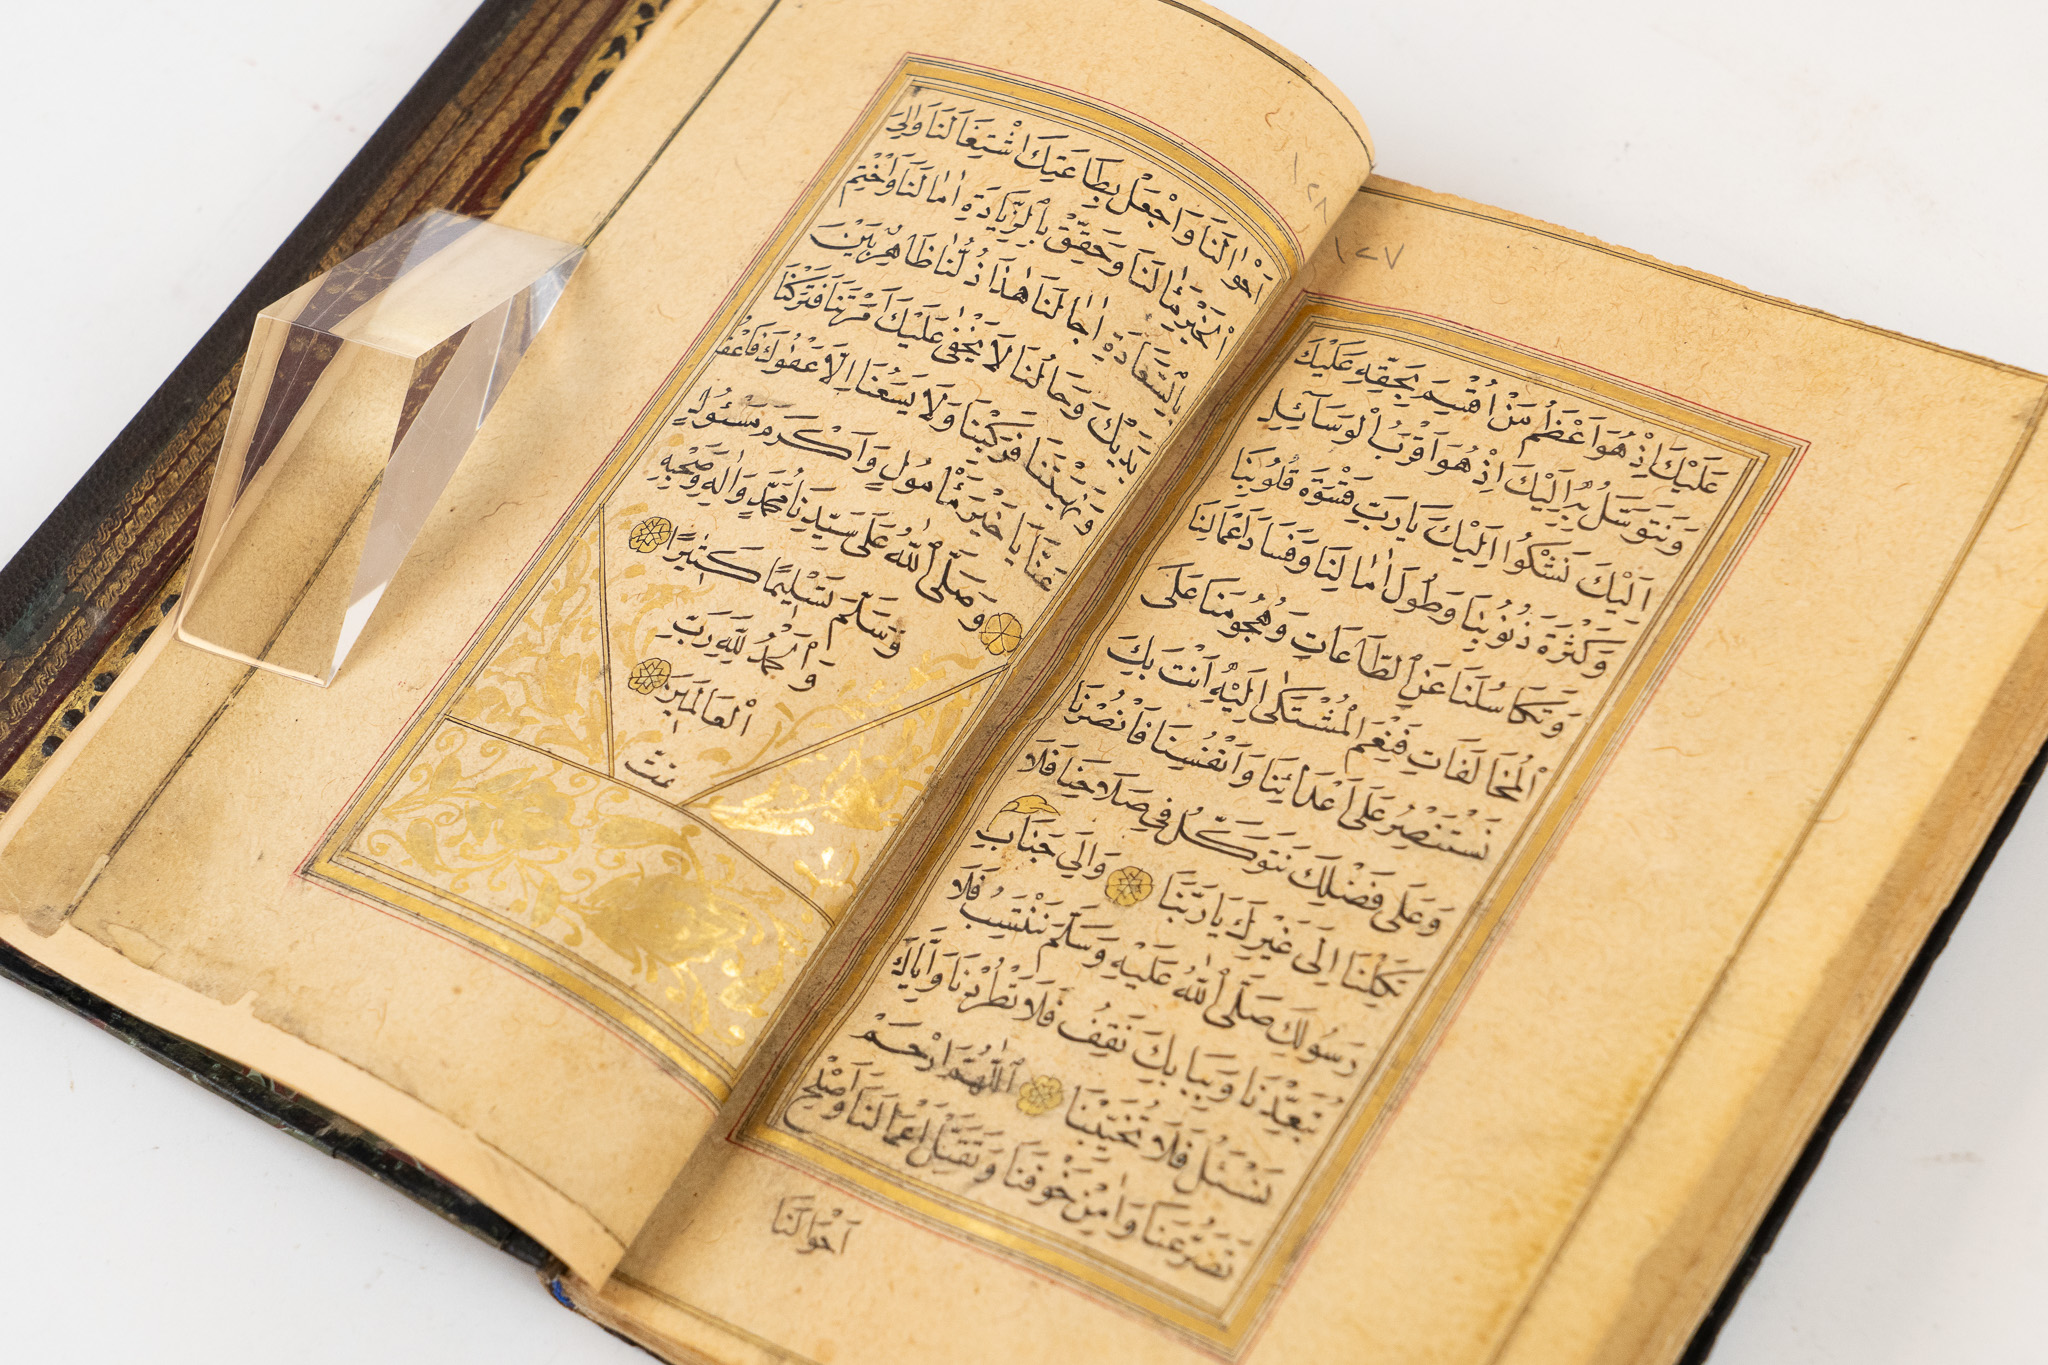 ١٢٧
عَلَيْكَ اِذْ هُوَ اَعْظَمُ مَنْ اُقْسِمَ بِحَقِّهِ عَلَيْكَ
وَنَتَوَسَّلُ بِهِ اِلَيْكَ اِذْ هُوَ اَقْرَبُ الْوَسَآئِلِ
اِلَيْكَ نَشْكُوا اِلَيْكَ يَا رَبِّ قَسْوَةَ قُلُوبِنَا
وَكَثْرَةَ ذُنُوبِنَا وَطُولَ اٰمَالِنَا وَفَسَادَ اَعْمَالِنَا
وَتَكَاسُلَنَا عَنِ الطَّاعَاتِ وَهُجُومَنَا عَلَى
الْمُخَالَفَاتِ فَنِعْمَ الْمُشْتَكٰى اِلَيْهِ اَنْتَ بِكَ
نَسْتَنْصِرُ عَلَى اَعْدَائِنَا وَاَنْفُسِنَا فَانْصُرْنَا
وَعَلَى فَضْلِكَ نَتَوَكَّلُ فِي صَلَاحِنَا فَلَا
تَكِلْنَا اِلَى غَيْرِكَ يَا رَبَّنَا وَاِلَى جَنَابِ
رَسُولِكَ صَلَّى اللّٰهُ عَلَيْهِ وَسَلَّمَ نَنْتَسِبُ فَلَا
تُبَعِّدْنَا وَبِبَابِكَ نَقِفُ فَلَا تَطْرُدْنَا وَاِيَّاكَ
نَسْئَلُ فَلَا تُخَيِّبْنَا اَللّٰهُمَّ ارْحَمْ
تَضَرُّعَنَا وَاٰمِنْ خَوْفَنَا وَتَقَبَّلْ اَعْمَالَنَا وَاَصْلِحْ
اَحْوَالَنَا
١٢٨
اَحْوَالَنَا وَاجْعَلْ بِطَاعَتِكَ اشْتِغَالَنَا وَاِلَى
الْخَيْرِ مَاٰلَنَا وَحَقِّقْ بِالزِّيَادَةِ اٰمَالَنَا وَاخْتِمْ
بِالسَّعَادَةِ اٰجَالَنَا هٰذَا ذُلُّنَا ظَاهِرٌ بَيْنَ
يَدَيْكَ وَحَالُنَا لَا يَخْفٰى عَلَيْكَ اَمَرْتَنَا فَتَرَكْنَا
وَنَهَيْتَنَا فَرَكِبْنَا وَلَا يَسَعُنَا اِلَّا عَفْوُكَ فَاعْفُ
عَنَّا يَا خَيْرَ مَأْمُولٍ وَاَكْرَمَ مَسْئُولٍ
وَصَلَّى اللّٰهُ عَلَى سَيِّدِنَا مُحَمَّدٍ وَاٰلِهِ وَصَحْبِهِ
وَسَلَّمَ تَسْلِيمًا كَثِيرًا
وَالْحَمْدُ لِلّٰهِ رَبِّ
الْعَالَمِينَ
تمت